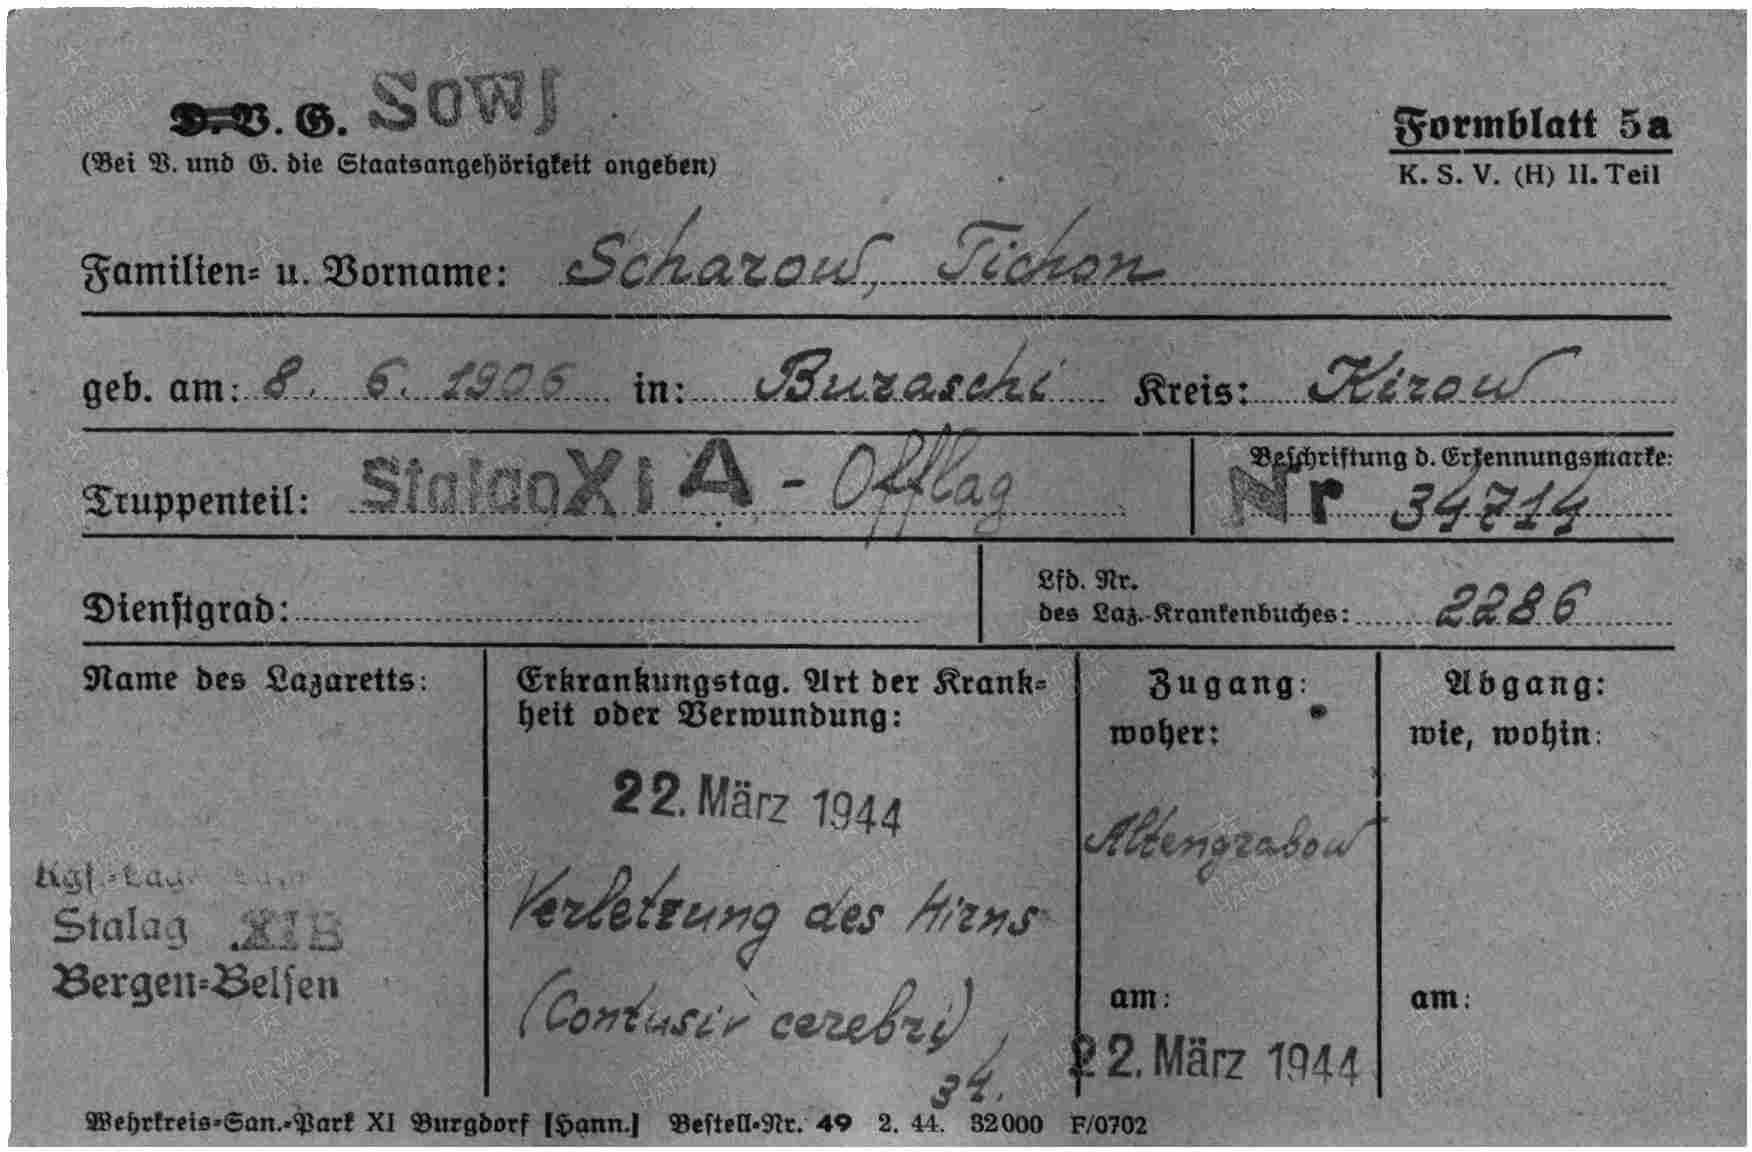 D.V.G. Sowj
(Bei V. und G. die Staatsangehörigkeit angeben)
Formblatt 5a
K. S. V. (H) II. Teil
Familien= u. Vorname: Scharow, Tichon
geb. am: 8. 6. 1906 in: Buraschi Kreis: Kirow
Truppenteil: Stalag XI A - Offlag
Beschriftung d. Erkennungsmarke:
Nr 34714
Dienstgrad:
Lfd. Nr.
des Laz.-Krankenbuches: 2286
Name des Lazaretts:
Kgf.-Laz.
Stalag XIB
Bergen=Belsen
Erkrankungstag. Art der Krank=
heit oder Verwundung:
22. März 1944
Verletzung des Hirns
(Contusio cerebri)
34.
Zugang:
woher:
Altengrabow
am:
22. März 1944
Abgang:
wie, wohin:
am:
Wehrkreis=San.=Park XI Burgdorf [Hann.] Bestell=Nr. 49 2. 44. 32000 F/0702
ПАМЯТЬ НАРОДА